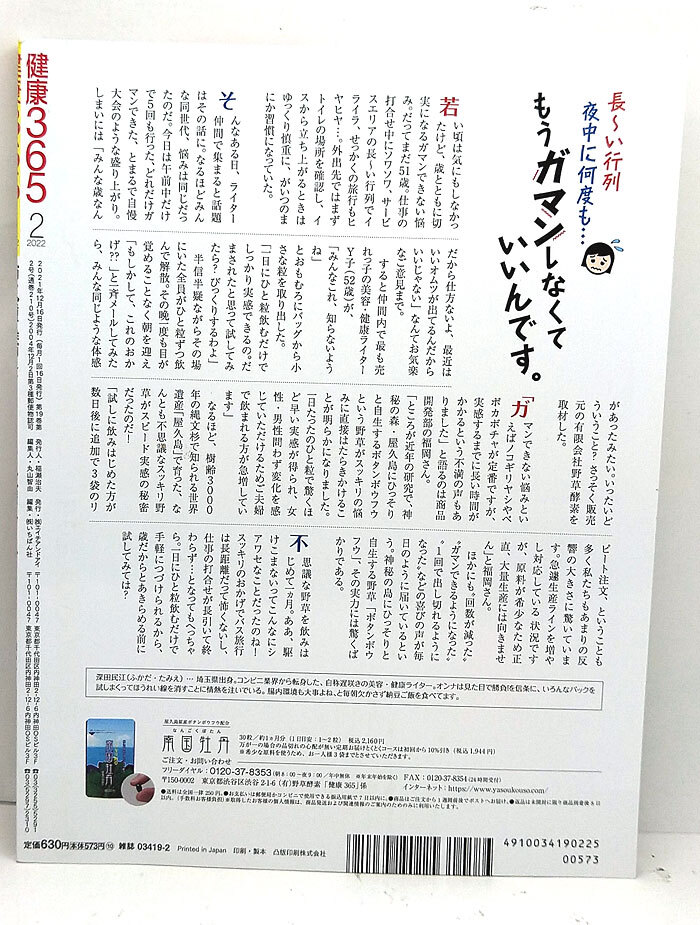 長〜い行列
夜中に何度も…
もうガマンしなくて
いいんです。
若い頃は気にもしなかっ
たけど、歳とともに切
実になるガマンできない悩
み。だってまだ51歳。仕事の
打合せ中にソワソワ、サービ
スエリアの長〜い行列でイ
ライラ、せっかくの旅行もヒ
ヤヒヤ…。外出先ではまず
トイレの場所を確認し、イ
スから立ち上がるときは
ゆっくり慎重に、がいつのま
にか習慣になっていた。
そんなある日、ライター
仲間で集まると話題
はその話に。なるほどみん
な同世代、悩みは同じだっ
たのだ。今日は午前中だけ
で5回も行った、どれだけガ
マンできた、とまるで自慢
大会のような盛り上がり。
しまいには「みんな歳なん
だから仕方ないよ、最近は
いいオムツが出てるんだから
いいじゃない」なんてお気楽
なご意見まで。
すると仲間内で最も売
れっ子の美容・健康ライター
Y子(52歳)が、
「みんなこれ、知らないよう
ね」
とおもむろにバッグから小
さな粒を取り出した。
「一日にひと粒飲むだけで
しっかり実感できるの。だ
まされたと思って試してみ
たら?びっくりするわよ」
半信半疑ながらその場
にいた全員がひと粒ずつ飲
んで解散。その晩一度も目が
覚めることなく朝を迎え
「もしかして、これのおか
げ??」と一斉メールしてみた
ら、みんな同じような体感
があったみたい。いったいど
ういうこと?さっそく販売
元の有限会社野草酵素を
取材した。
「ガマンできない悩みとい
えばノコギリヤシやペ
ポカボチャが定番ですが、
実感するまでに長い時間が
かかるという不満の声もあ
りました」と語るのは商品
開発部の福岡さん。
「ところが近年の研究で、神
秘の森・屋久島にひっそり
と自生するボタンボウフウ
という野草がスッキリの悩
みに直接はたらきかけるこ
とが明らかになりました。
一日たったのひと粒で驚くほ
ど早い実感が得られ、女
性・男性問わず変化を感
じていただけるためご夫婦
で飲まれる方が急増してい
ます」
なるほど、樹齢3000
年の縄文杉で知られる世界
遺産「屋久島」で育った、な
んとも不思議なスッキリ野
草がスピード実感の秘密
だったのだ!
「試しに飲みはじめた方が
数日後に追加で3袋のリ
ピート注文、ということも
多く私たちもあまりの反
響の大きさに驚いていま
す。急遽生産ラインを増や
し対応している状況です
が、原料が希少なため正
直、大量生産には向きませ
ん」と福岡さん。
ほかにも〝回数が減った〟
〝ガマンできるようになった〟
〝1回で出し切れるように
なった〟などの喜びの声が毎
日のように届いているとい
う。神秘の島にひっそりと
自生する野草「ボタンボウ
フウ」、その実力には驚くば
かりである。
不思議な野草を飲みは
じめて1ヵ月。ああ、駆
けこまないってこんなにシ
アワセなことだったのね!
スッキリのおかげでバス旅行
は長距離だって怖くないし、
仕事の打合せが長引いて終
わらず…となってもへっちゃ
ら。一日にひと粒飲むだけで
手軽につづけられるから、
歳だからとあきらめる前に
試してみては?
深田民江(ふかだ・たみえ)… 埼玉県出身。コンビニ業界から転身した、自称遅咲きの美容・健康ライター。オンナは見た目で勝負!を信条に、いろんなパックを
試しまくってほうれい線を消すことに情熱を注いでいる。腸内環境も大事よね、と毎朝欠かさず納豆ご飯を食べてます。
屋久島原産ボタンボウフウ配合
なんごくぼたん
南国牡丹
30粒/約1ヵ月分(1日目安:1〜2粒) 税込2,160円
万が一の場合の品切れの心配が無い定期お届けとくとくコースは初回から10%引き(税込1,944円)
※希少な原料を使うため、お一人様3袋までとさせていただきます。
ご注文・お問い合わせ
フリーダイヤル:0120-37-8353(朝8:00〜夜9:00/年中無休 ※年末年始を除く) FAX:0120-37-8354(24時間受付)
〒150-0002 東京都渋谷区渋谷2-1-6(有)野草酵素「健康365」係 インターネット:https://www.yasoukouso.com/
健康365
2
2022
2021年12月16日発行(毎月1回16日発行)第19巻第
発行人・稲瀬治夫
編集人・丸山智由
発行・㈱エイチアンドアイ
編集・㈱いちばん社
〒101-0047 東京都千代田区内神田2-12-6 内神田OSビル
定価630円 本体573円⑩ 雑誌 03419-2 Printed in Japan 印刷・製本 凸版印刷株式会社
4910034190225
00573